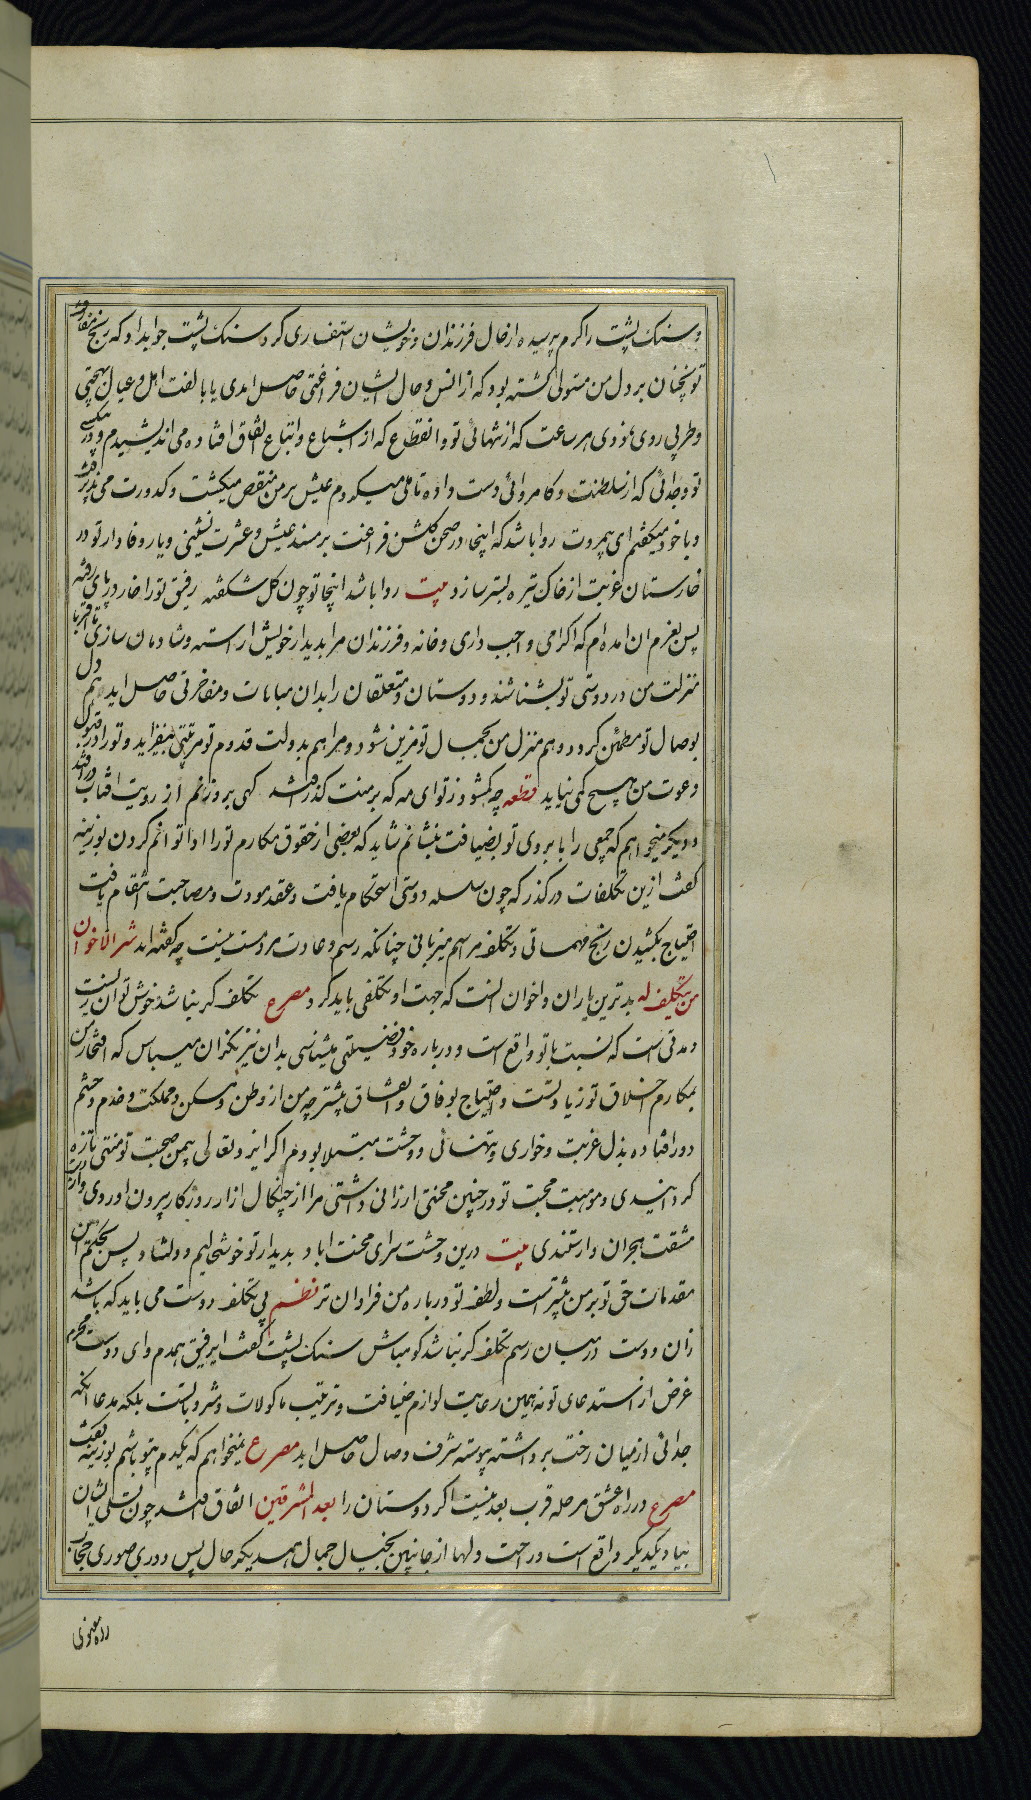 و سنک پشت را کرم پرسیده از حال فرزندان و خویشان استفساری کرد سنک پشت جواب داد که رنج مفارقت
تو نچنان بر دل من مستولی کشته بود که از انس وصال ایشان فراغتی حاصل امدی یا بالفت اهل و عیال بهجتی
و طربی روی نمودی هر ساعت که از تنهائی تو و انقطاع که از اشیاع و اتباع اتفاق افتاده می اندیشیدم و در بیکسی
تو و جدائی که از سلطنت و کامروائی دست داده تاملی میکردم عیش بر من منغص میکشت و کدورت می پذیرفت
و با خود میکفتم ای بیمروت روا باشد که اینجا در صحن کلشن فراغت بر مسند عیش و عشرت نشینی و یار وفادار تو در
خارستان غربت از خاک تیره بستر سازد بیت روا باشد اینجا تو چون کل شکفته رفیق تو را خار در پای رفته
پس بعزم ان امده ام که اکرامی واجب داری و خانه و فرزندان مرا بدیدار خویش اراسته و شادمان سازی تا اقربا
منزلت من در دوستی تو بشناسند و دوستان و متعلقان را بدان مباهات و مفاخرتی حاصل اید هم دل
بوصال تو مطمئن کردد و هم منزل من بجمال تو مزین شود و مرا هم بدولت قدوم تو مرتبتی بیفزاید و تو را در قبول
دعوت من هیچ کمی نیاید قطعه چه کم شود ز تو ای مه که بر منت کذر افتد کهی بروزنم از رویت افتاب در افتد
و دیکر میخواهم که جمعی را با بروی تو بضیافت بنشانم شاید که بعضی از حقوق مکارم تو را ادا توانم کردن بوزینه
کفت ازین تکلفات در کذر که چون سلسله دوستی استحکام یافت و عقد مودت و مصاحبت انتظام یافت
احتیاج بکشیدن رنج مهمانی و تکلف مراسم میزبانی چنانکه رسم و عادت مردمست نیست چه کفته اند شر الاخوان
من یتکلف له بدترین یاران و اخوان انست که جهت او تکلفی باید کرد مصرع تکلف کر نباشد خوش توان زیست
و مدتی است که نسبت با تو واقع است و درباره خود فضیلتی میشناسی بدان نیز نکران مباش که افتخار من
بمکارم اخلاق تو زیادتست و احتیاج بوفاق و اتفاق بیشتر چه من از وطن و مسکن و مملکت و خدم و حشم
دور افتاده بذل غربت و خواری و تنهائی و وحشت مبتلا بودم اکر ایزد تعالی بیمن صحبت تو منتی تازه
کردانیدی و موهبت محبت تو در چنین محنتی ارزانی داشتی مرا از چنکال ازار روزکار بیرون اوردی
مشقت هجران وارستندی بیت درین وحشت سرای محنت اباد بدیدار تو خوشحالیم و دلشاد پس بحکم این
مقدمات حق تو بر من بیشترست و لطف تو درباره من فراوان تر نظم بی تکلف دوست می باید که باشد
زان و دوست در میان رسم تکلف کر نباشد کو مباش سنک پشت کفت ای رفیق همدم و ای دوست محرم
غرض از استدعای تو نه همین رعایت لوازم ضیافت و ترتیب ماکولات و مشروباتست بلکه مدعا انکه
جدائی از میان رخت برداشته پیوسته شرف وصال حاصل اید مصرع نمیخواهم که یکدم بیتو باشم بوزینه کفت
مصرع در راه عشق مرحله قرب و بعد نیست اکر دوستان را بعد المشرقین اتفاق افتد چون تسلی ایشان
بیاد یکدیکر واقع است و راحت دلها از جانبین بخیال جمال همدیکر حال پس دوری صوری حجاب
راه معنوی